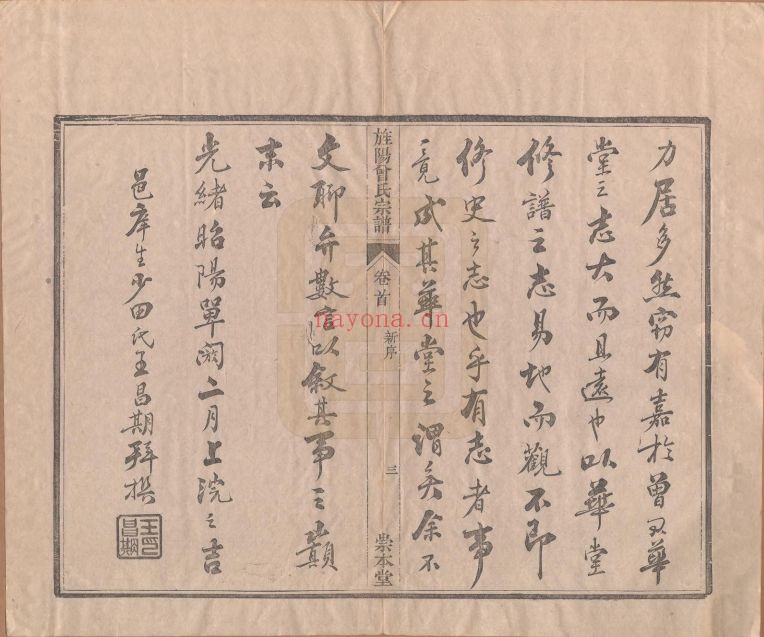 力居多然窃有嘉於曾君華
堂之志大而且遠也以華堂
修譜之志易地而觀不即
修史之志也乎有志者事
竟成其華堂之謂矣余不
旌陽曾氏宗譜
卷首
新序
三
崇本堂
文聊弁數言以敘其事之巔
末云
光緒昭陽單閼二月上浣之吉
邑庠生少田氏王昌期拜撰
王印昌期
nayona.cn